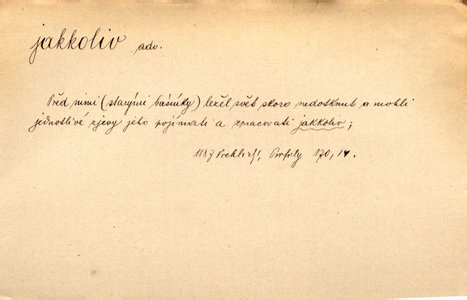 jakkoliv adv.
Před nimi (starými básníky) ležel svět skoro nedotknut a mohli
jednotlivé zjevy jeho pojímati a zpracovati jakkoliv;
1887 Profily 170, 14.